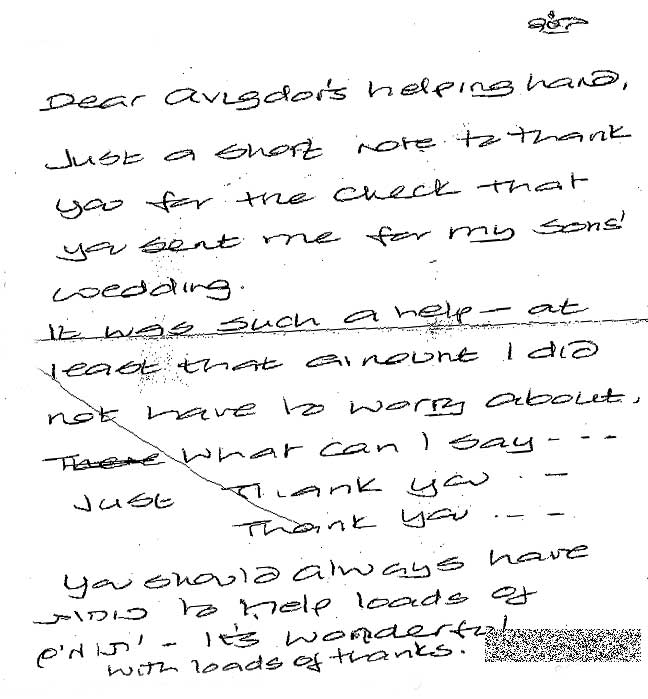 Dear Avigdor's helping hand,
Just a short note to thank
you for the check that
you sent me for my sons'
wedding.
It was such a help - at
least that amount I did
not have to worry about.
There What can I say - - -
Just Thank you . -
Thank you . - -
You should always have
כוחות to help loads of
יתומים - It's wonderful
with loads of thanks.